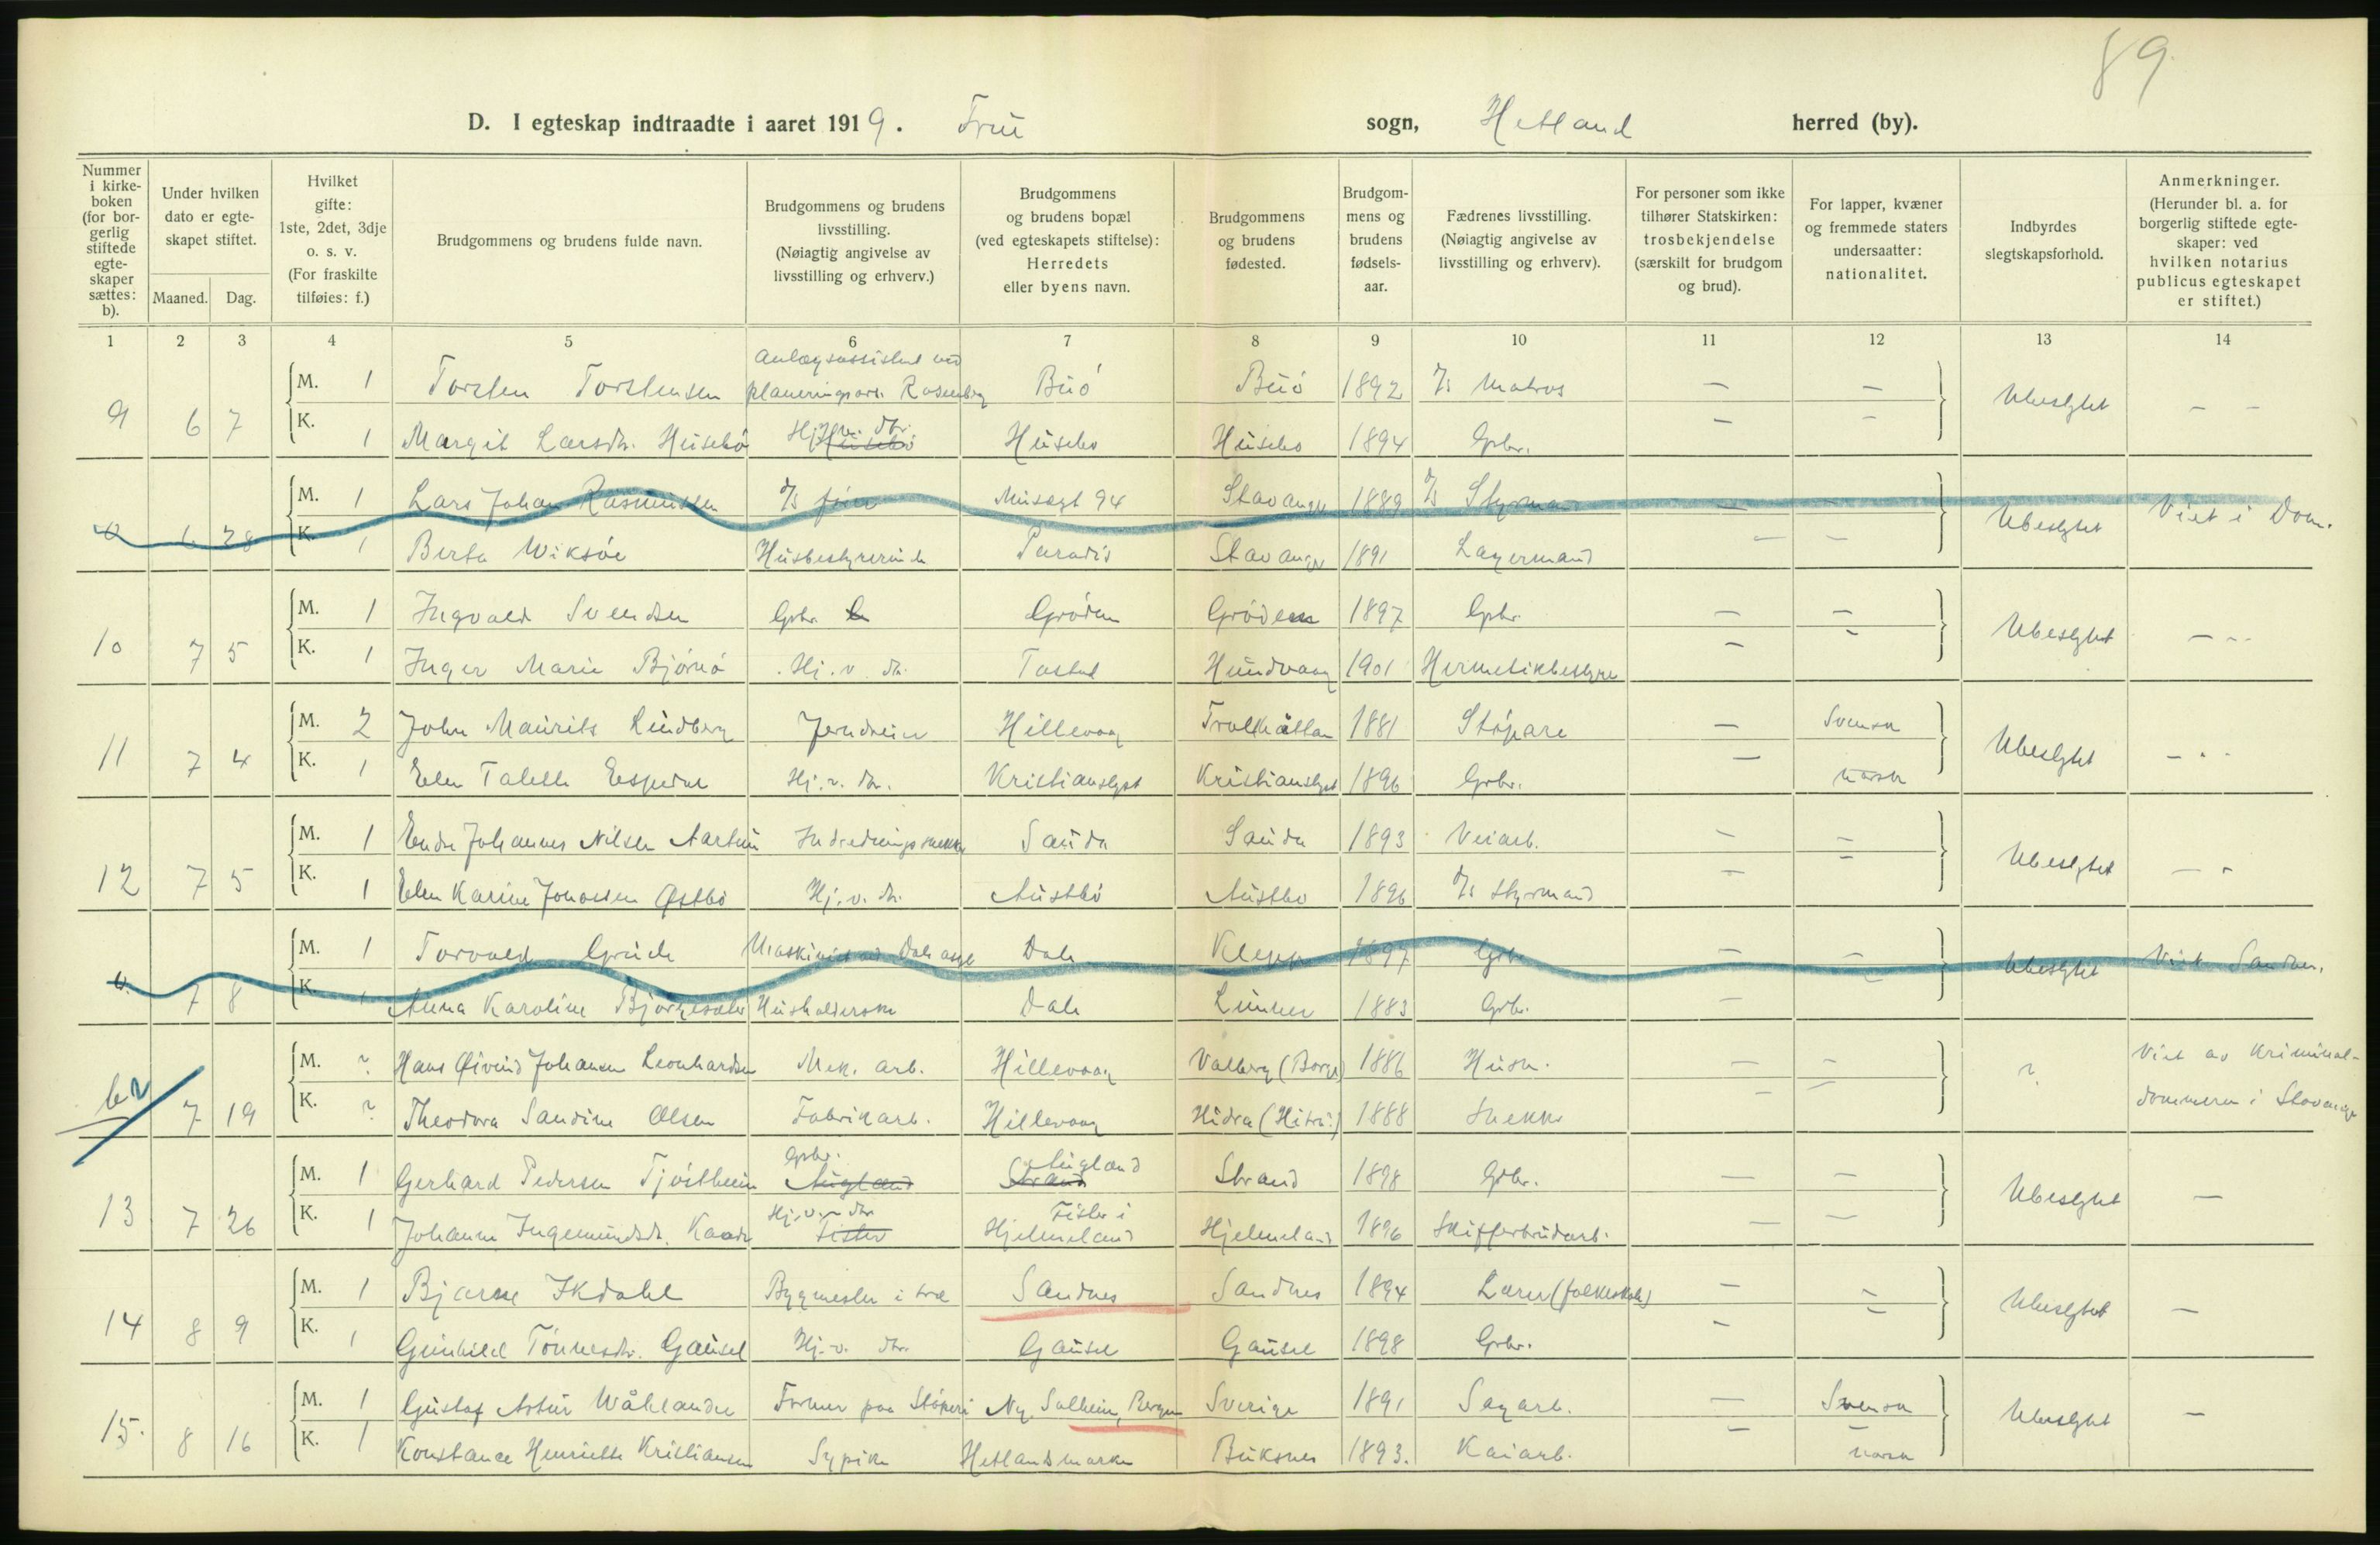 89.
D. I egteskap indtraadte i aaret 1919. Frue sogn, Hetland herred (by).
Nummer i kirkeboken (for borgerlig stiftede egteskaper sættes: b).
Under hvilken dato er egteskapet stiftet.
Maaned. Dag.
Hvilket gifte: 1ste, 2det, 3dje o. s. v. (For fraskilte tilføies: f.)
Brudgommens og brudens fulde navn.
Brudgommens og brudens livsstilling. (Nøiagtig angivelse av livsstilling og erhverv.)
Brudgommens og brudens bopæl (ved egteskapets stiftelse): Herredets eller byens navn.
Brudgommens og brudens fødested.
Brudgommens og brudens fødselsaar.
Fædrenes livsstilling. (Nøiagtig angivelse av livsstilling og erhverv).
For personer som ikke tilhører Statskirken: trosbekjendelse (særskilt for brudgom og brud).
For lapper, kvæner og fremmede staters undersaatter: nationalitet.
Indbyrdes slegtskapsforhold.
Anmerkninger. (Herunder bl. a. for borgerlig stiftede egteskaper: ved hvilken notarius publicus egteskapet er stiftet.)
1 2 3 4 5 6 7 8 9 10 11 12 13 14
Anlægsassistent ved
M. 1 Torsten Torstensen planeringsarb. Rosenberg Buø Buø 1892 Matros — —
9 6 7 Ubeslgtet — —
K. 1 Margit Larsdtr. Husebø Hj. v. dtr. Husebø Husebø 1894 Gbr. — —
M. 1 Lars Johan Rasmussen Musegt 94 Stavanger 1889 Styrmand —
6 28 Ubeslgtet Viet i Dom.
K. 1 Berta Wiksøe Husbestyrerinde Paradis Stavanger 1891 Lagermand — —
M. 1 Ingvald Svendsen Gbr. Grøden Grøden 1897 Gbr. — —
10 7 5 Ubeslgtet — - -
K. 1 Inger Marie Bjørnø Hj. v. dtr. Tasta Hundvaag 1901 Hermetikbestyrer — —
M. 2 John Maurits Lindberg Jerndreier Hillevaag Trollhättan 1881 Stöpare — Svensk
11 7 4 Ubeslgtet — - -
K. 1 Elen Talette Espedal Hj. v. dtr. Kristianslyst Kristianslyst 1896 Gbr. — norsk
M. 1 Endre Johannes Nilsen Aartun Indredningssnekker Sauda Sauda 1893 Veiarb. — —
12 7 5 Ubeslgtet — -
K. 1 Elen Karine Jonassen Østbø Hj. v. dtr. Austbø Austbø 1896 Styrmand — —
M. 1 Torvald Grude Maskinist ved Dale asyl Dale Klepp 1897 Gbr. — —
7 8 Ubeslgtet Viet Sandnes.
K. 1 Anna Karoline Husholderske Dale Lunner 1883 Gbr. — —
M. ? Hans Øivind Johansen Leonhardsen Mek. arb. Hillevaag Valberg (Borge) 1886 Husm. — — Viet av Kriminal-
b2 7 19 ?
K. ? Theodora Sandine Olsen Fabrikarb. Hillevaag Hidra (Hitra?) 1888 Snekker — — dommeren i Stavanger
Gbr. Augland
M. 1 Gerhard Pedersen Tjøstheim Augland Strand Strand 1898 Gbr. — —
13 7 26 Ubeslgtet —
Hj. v. dtr. Fister i
K. 1 Johanne Ingemundsdtr. Kaada Fister Hjelmeland Hjelmeland 1896 Skifferbrudarb. — —
M. 1 Bjarne Ikdahl Bygmester i træ Sandnes Sandnes 1894 Lærer (folkeskole) — —
14 8 9 Ubeslgtet —
K. 1 Gunhild Tønnesdtr. Gausel Hj. v. dtr. Gausel Gausel 1898 Gbr. — —
M. 1 Gustaf Artur Wåhlander Former paa Støperi Ny. Solheim, Bergen Sverige 1891 Sagarb. — Svensk
15. 8 16 Ubeslgtet —
K. 1 Konstance Henriette Kristiansen Sypike Hetlandsmarken Buksnes 1893. Kaiarb. — norsk